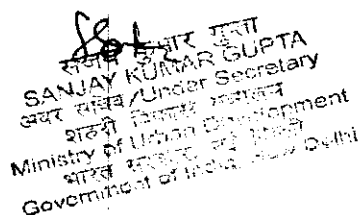 संजय कुमार गुप्ता
SANJAY KUMAR GUPTA
अवर सचिव/Under Secretary
शहरी विकास मंत्रालय
Ministry of Urban Development
भारत सरकार, नई दिल्ली
Government of India, New Delhi